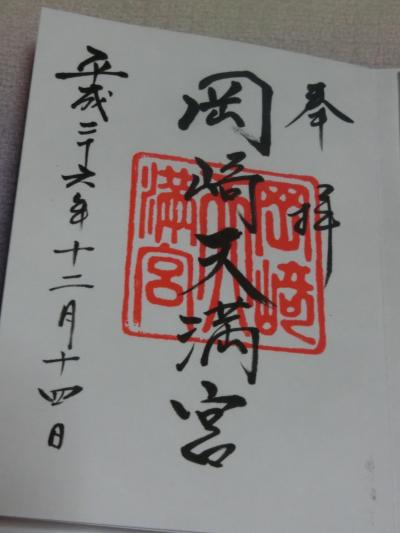 奉拝
岡崎天満宮
岡崎天満宮
平成二十六年十二月十四日